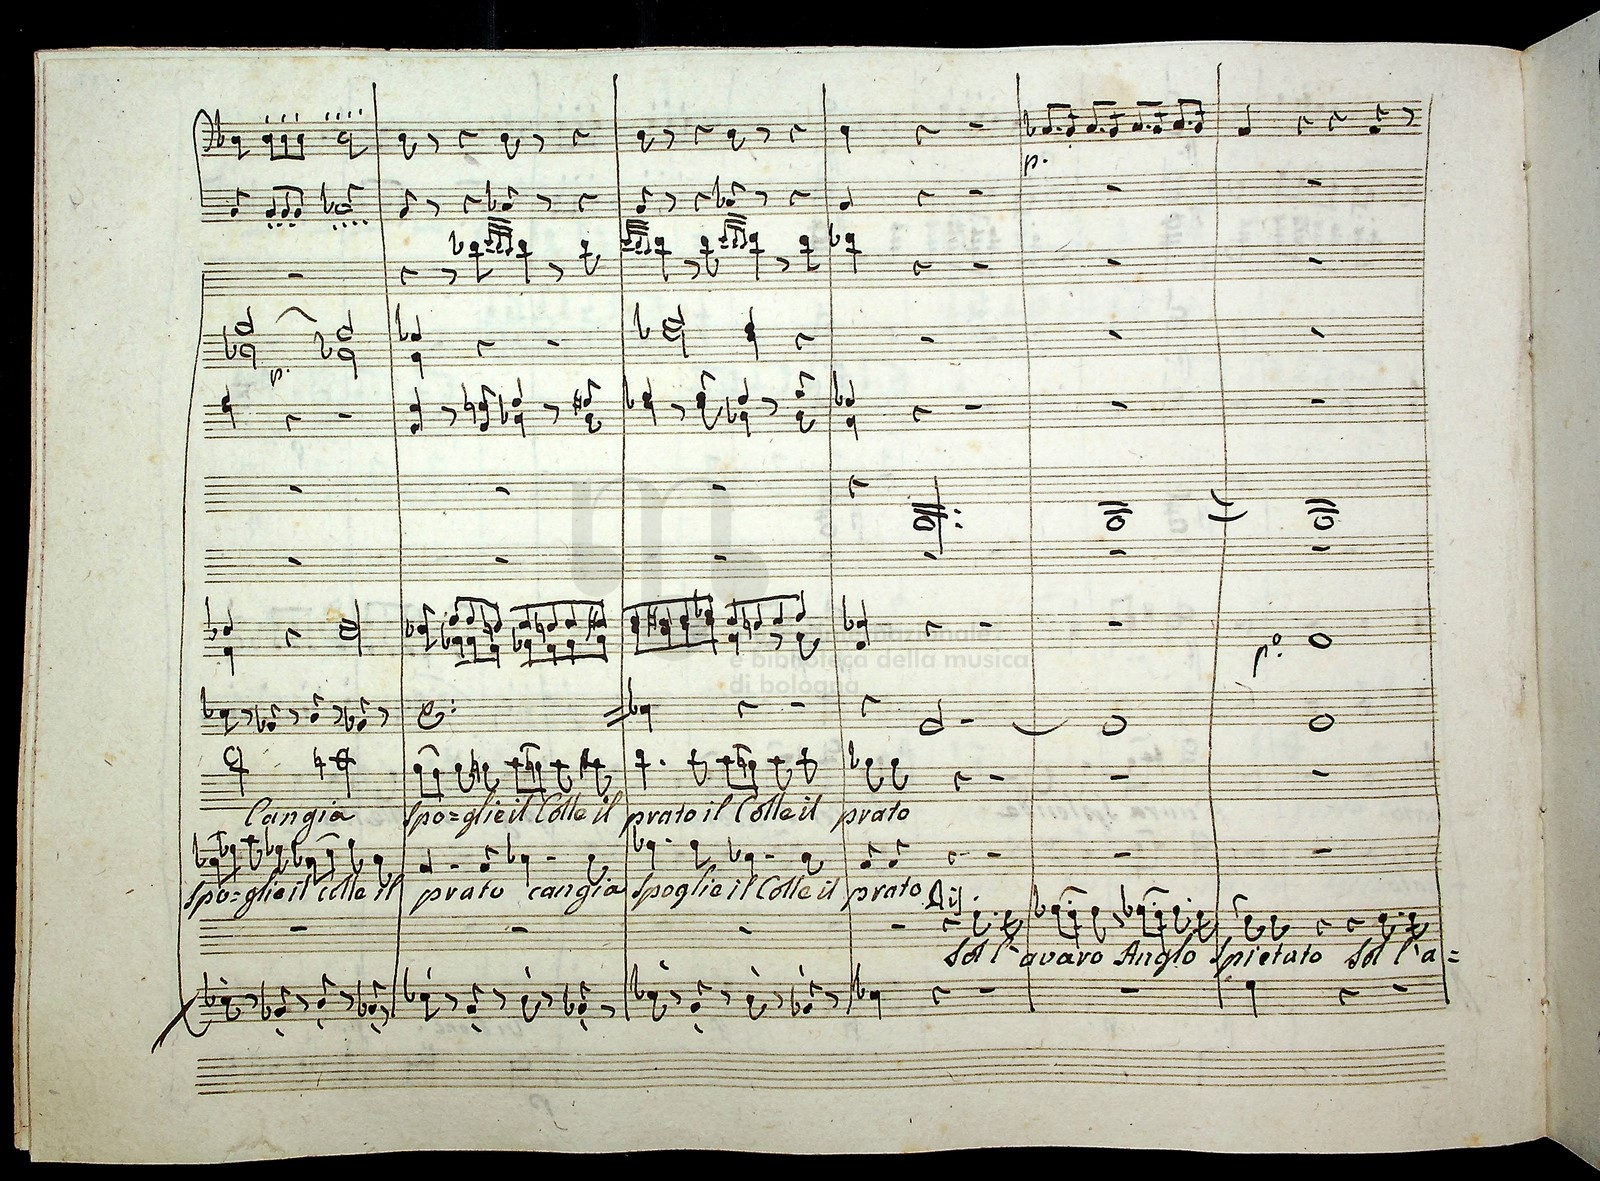 p.
p.
p.o
Cangia spo=glie il Colle il prato il Colle il prato
spo=glie il Colle il prato cangia spoglie il Colle il prato
Sol l'avaro Anglo spietato Sol l'a=
nazionale
e biblioteca della musica
di bologna